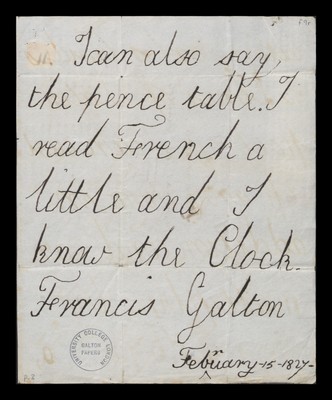 I can also say,
the pence table. I
read French a
little and I
know the Clock.
Francis Galton
February-15-1827-
UNIVERSITY COLLEGE LONDON
GALTON
PAPERS